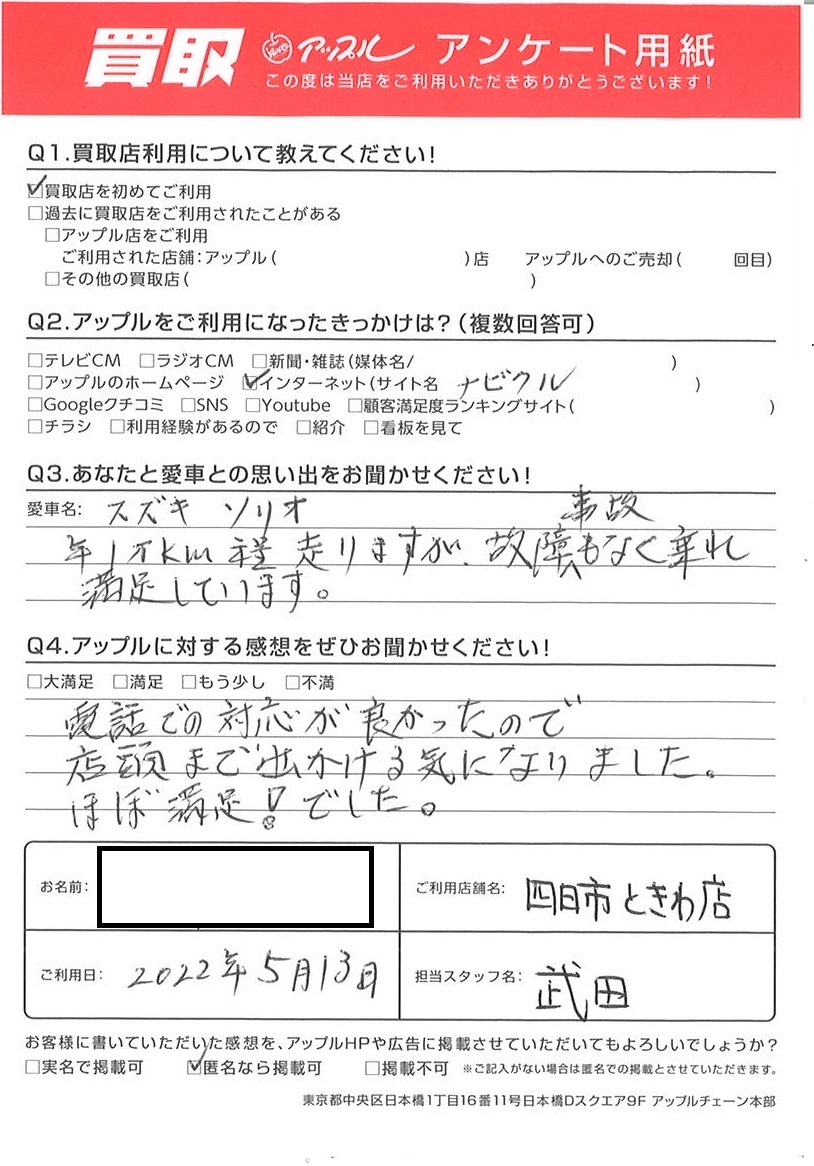 買取 アップル アンケート用紙
この度は当店をご利用いただきありがとうございます!
Q1.買取店利用について教えてください!
☑買取店を初めてご利用
□過去に買取店をご利用されたことがある
□アップル店をご利用
ご利用された店舗:アップル( )店 アップルへのご売却( 回目)
□その他の買取店( )
Q2.アップルをご利用になったきっかけは?(複数回答可)
□テレビCM □ラジオCM □新聞・雑誌(媒体名/ )
□アップルのホームページ ☑インターネット(サイト名 ナビクル )
□Googleクチコミ □SNS □Youtube □顧客満足度ランキングサイト( )
□チラシ □利用経験があるので □紹介 □看板を見て
Q3.あなたと愛車との思い出をお聞かせください!
愛車名: スズキ ソリオ
事故
年1万km程走りますが、故障もなく乗れ
満足しています。
Q4.アップルに対する感想をぜひお聞かせください!
□大満足 □満足 □もう少し □不満
電話での対応が良かったので
店頭まで出かける気になりました。
ほぼ満足!でした。
お名前: ご利用店舗名: 四日市ときわ店
ご利用日: 2022年5月13日 担当スタッフ名: 武田
お客様に書いていただいた感想を、アップルHPや広告に掲載させていただいてもよろしいでしょうか?
□実名で掲載可 ☑匿名なら掲載可 □掲載不可 ※ご記入がない場合は匿名での掲載とさせていただきます。
東京都中央区日本橋1丁目16番11号日本橋Dスクエア9F アップルチェーン本部